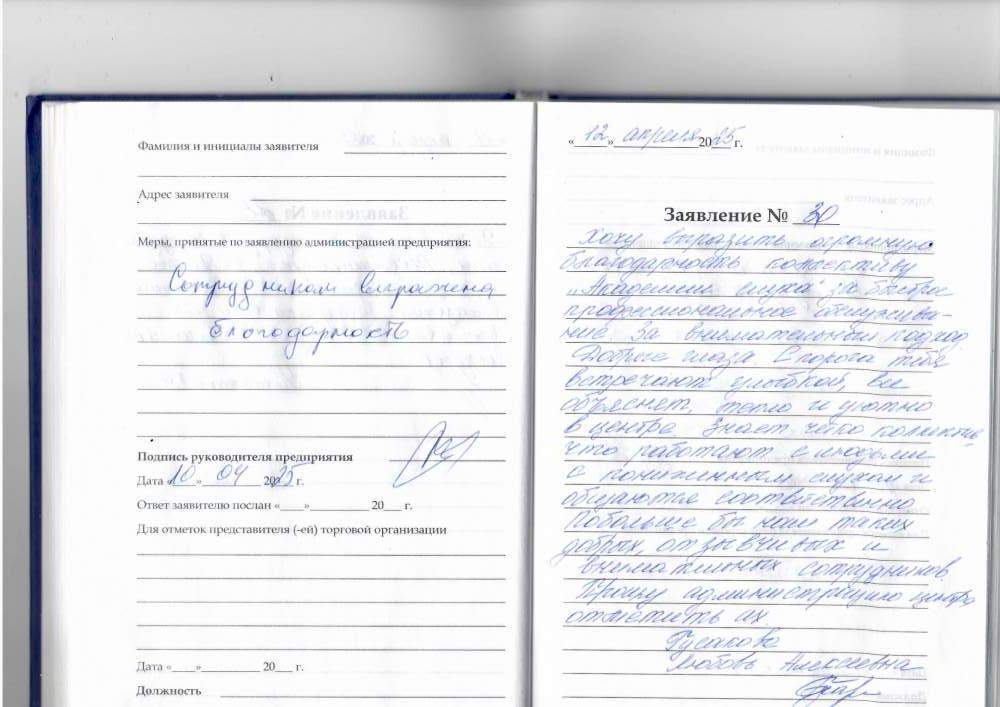 Фамилия и инициалы заявителя
Адрес заявителя
Меры, принятые по заявлению администрацией предприятия:
Сотрудникам выражена
благодарность
Подпись руководителя предприятия
Дата «10» 04 2025 г.
Ответ заявителю послан «___»__________ 20___ г.
Для отметок представителя (-ей) торговой организации
Дата «___»__________ 20___ г.
Должность
«12» апреля 2025 г.
Заявление № 30
Хочу выразить огромную
благодарность коллективу
"Академии слуха" за быстрое
профессиональное обслужива-
ние За внимательный подход,
Добрые глаза С порога тебя
встречают улыбкой, все
объяснят, тепло и уютно
в центре Знает чётко коллектив,
что работают с людьми
с пониженным слухом и
общаются соответственно
Побольше бы нам таких
добрых, отзывчивых и
внимательных сотрудников
Прошу администрацию центра
отметить их
Гусакова
Любовь Алексеевна